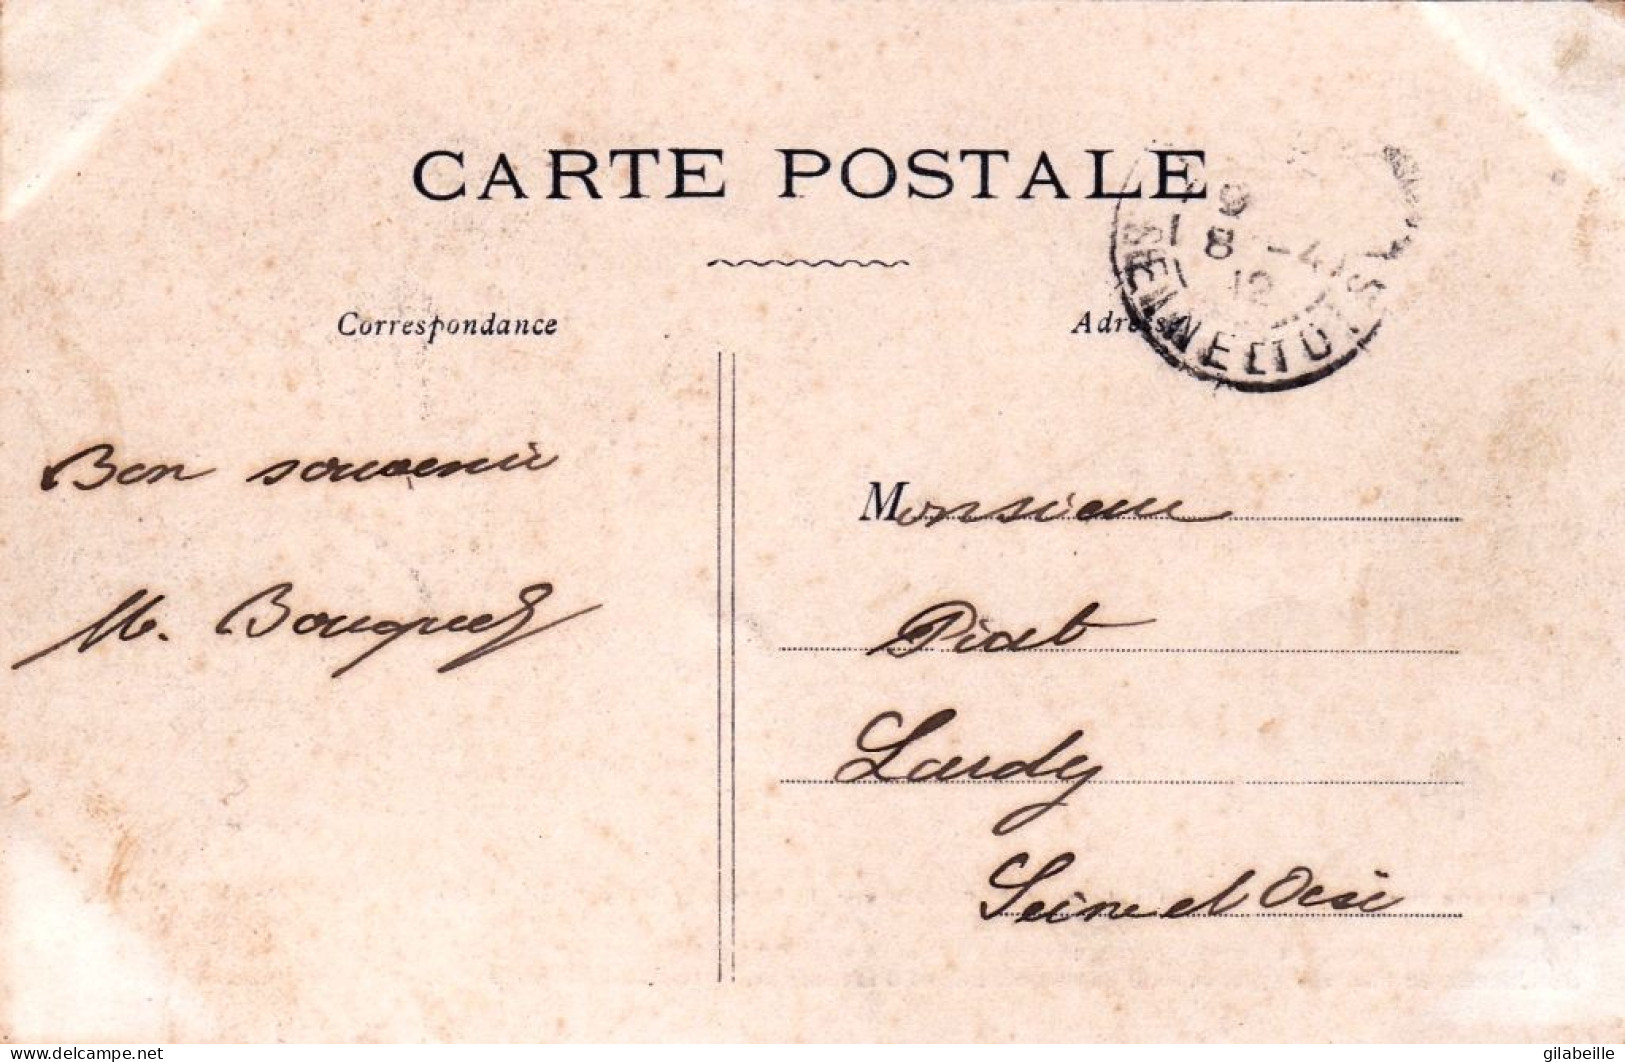 CARTE POSTALE
Correspondance
Adresse
9
8 -4
12
SEINE ET OISE
Bon souvenir
M. Bouquet
Monsieur
Piat
Lardy
Seine et Oise
https://www.delcampe.net
gilabeille